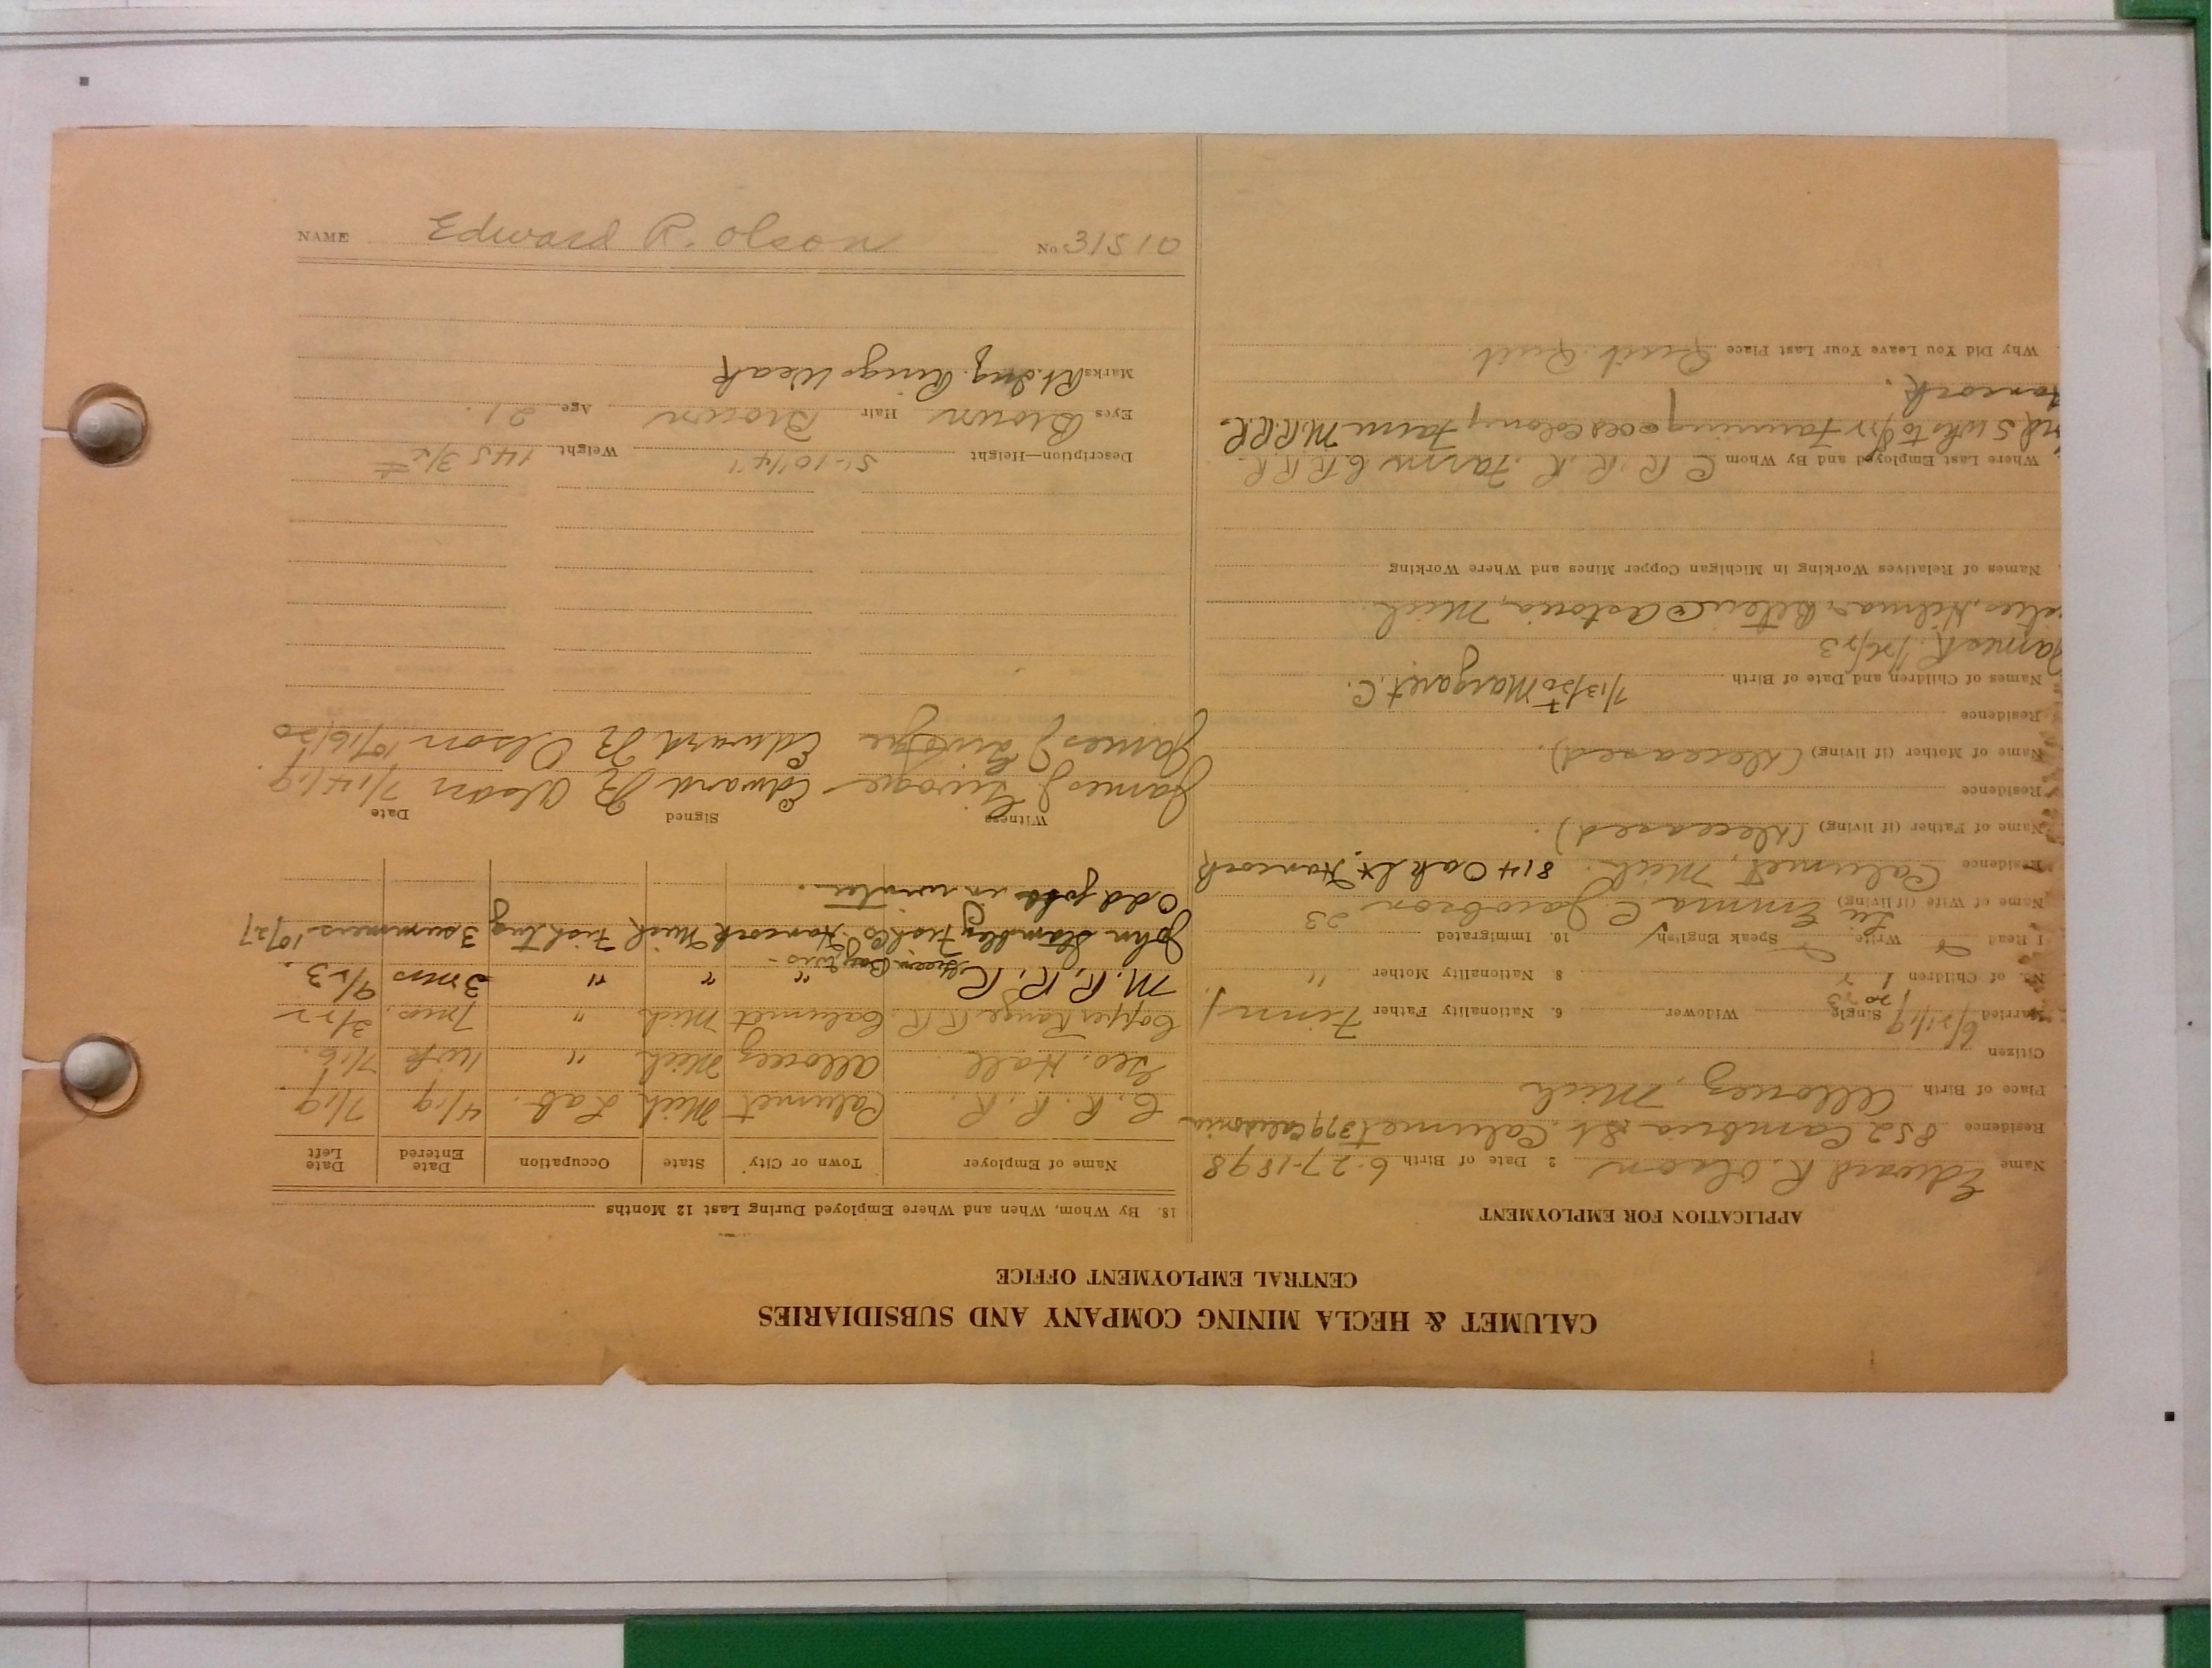 NAME Edward R. Olson No 31510
CALUMET & HECLA MINING COMPANY AND SUBSIDIARIES
CENTRAL EMPLOYMENT OFFICE
APPLICATION FOR EMPLOYMENT
Name Edward R. Olson 2. Date of Birth 6-27-1898
Residence 852 Cambria St. Calumet 379 Caledonia
Place of Birth Allouez, Mich
Citizen
Married 6/21/19 Single Widower 6. Nationality Father Finn
No. of Children 1 2 8 Nationality Mother "
I Read Write Speak English 10. Immigrated 23
Name of Wife (if living) Emma C Jacobson
Residence Calumet, Mich. 814 Oak St, Hancock
Name of Father (if living) (Deceased).
Residence
Name of Mother (if living) (Deceased).
Residence
Names of Children and Date of Birth 7/13/20 Margaret C.
James R. 1/26/23
Hilma Astoria, Mich
Names of Relatives Working in Michigan Copper Mines and Where Working
Where Last Employed and By Whom C. R. R. R. Farm C.R.R.R.
farming Colony Farm M.R.R.R.
Hancock.
Why Did You Leave Your Last Place Quit Quit.
18. By Whom, When and Where Employed During Last 12 Months
Name of Employer Town or City State Occupation Date Entered Date Left
C. R. R. R. Calumet Mich Lab. 4/19 7/19
Geo. Hall Allouez Mich " 1 wk 7/16.
Copper Range R R. Calumet Mich " 7 mos. 3/22
M. R. R. R Green Bay, Wis - " " " 3 mos 9/23.
John Fish Co Hancock Mich Fishing 3 summers 10/27
Odd jobs in winter.
Witness Signed Date
James J Edward R Olson 7/14/19.
James J Edward R Olson 10/16/20
Description—Height 5'-10 1/4" Weight 145 3/4 #
Eyes Brown Hair Brown Age 21.
Marks Rt. Ing. Ring Weak